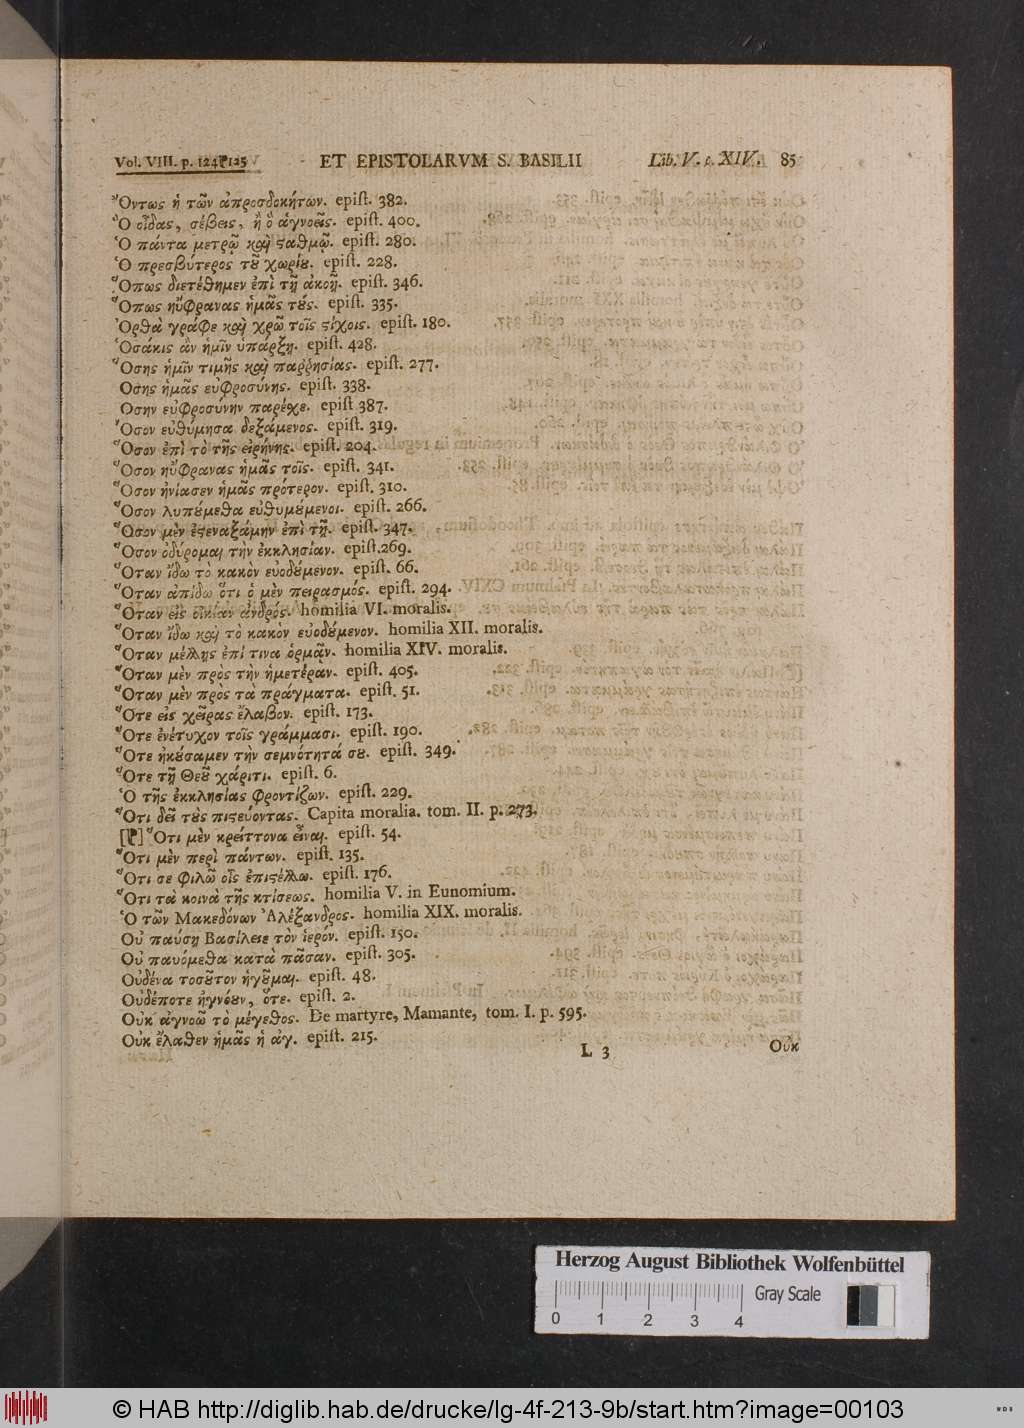 Vol. VIII. p. 124 125 ET EPISTOLARVM S. BASILII Lib. V. c. XIV. 85
Ὄντως ἡ τῶν ἀπροσδοκήτων. epist. 382.
Ὃ οἶδας, σέβεις, ἢ ὃ ἀγνοεῖς. epist. 400.
Ὁ πάντα μετρῶ καὶ ςαθμῷ. epist. 280.
Ὁ πρεσβύτερος τȣ͂ χωρίȣ. epist. 228.
Ὅπως διετέθημεν ἐπὶ τῇ ἀκοῇ. epist. 346.
Ὅπως ηὔφρανας ἡμᾶς τȣ́ς. epist. 335.
Ὀρθὰ γράφε καὶ χρῶ τοῖς ςίχοις. epist. 180.
Ὁσάκις ἂν ἡμῖν ὑπάρξῃ. epist. 428.
Ὅσης ἡμῖν τιμῆς καὶ παῤῥησίας. epist. 277.
Οσης ἡμᾶς εὐφροσύνης. epist. 338.
Οσην εὐφροσύνην παρέχε. epist 387.
Ὅσον εὐθύμησα δεξάμενος. epist. 319.
Ὅσον ἐπὶ τὸ τῆς εἰρήνης. epist. 204.
Ὅσον ηὔφρανας ἡμᾶς τοῖς. epist. 341.
Ὅσον ἠνίασεν ἡμᾶς πρότερον. epist. 310.
Ὅσον λυπȣ́μεθα εὐθυμȣ́μενοι. epist. 266.
Ὅσον μὲν ἐςεναξάμην ἐπὶ τῇ. epist. 347.
Ὅσον ὀδύρομαι τὴν ἐκκλησίαν. epist.269.
Ὅταν ἴδω τὸ κακὸν εὐοδȣ́μενον. epist. 66.
Ὅταν ἀπίδω ὅτι ὁ μὲν πειρασμός. epist. 294.
Ὅταν εἰς οἰκίαν ἀνδρός. homilia VI. moralis.
Ὅταν ἴδω καὶ τὸ κακὸν εὐοδȣ́μενον. homilia XII. moralis.
Ὅταν μέλλῃς ἐπί τινα ὁρμᾶν. homilia XIV. moralis.
Ὅταν μὲν πρὸς τὴν ἡμετέραν. epist. 405.
Ὅταν μὲν πρὸς τὰ πράγματα. epist. 51.
Ὅτε εἰς χεῖρας ἔλαβον. epist. 173.
Ὅτε ἐνέτυχον τοῖς γράμμασι. epist. 190.
Ὅτε ἠκȣ́σαμεν τὴν σεμνότητά σȣ. epist. 349.
Ὅτε τῇ Θεȣ͂ χάριτι. epist. 6.
Ὁ τῆς ἐκκλησίας φροντίζων. epist. 229.
Ὅτι δεῖ τȣ̀ς πιςεύοντας. Capita moralia. tom. II. p. 273.
Ὅτι μὲν κρείττονα εἶναι. epist. 54.
Ὅτι μὲν περὶ πάντων. epist. 135.
Ὅτι σε φιλῶ οἷς ἐπιςέλλω. epist. 176.
Ὅτι τὰ κοινὰ τῆς κτίσεως. homilia V. in Eunomium.
Ὁ τῶν Μακεδόνων Ἀλέξανδρος. homilia XIX. moralis.
Οὐ παύσῃ Βασίλειε τὸν ἱερόν. epist. 150.
Οὐ παυόμεθα κατὰ πᾶσαν. epist. 305.
Οὐδένα τοσȣ͂τον ἡγȣ͂μαι. epist. 48.
Οὐδέποτε ἠγνόȣν, ὅτε. epist. 2.
Οὐκ ἀγνοῶ τὸ μέγεθος. De martyre, Mamante, tom. I. p. 595.
Οὐκ ἔλαθεν ἡμᾶς ἡ ἀγ. epist. 215.
L 3 Οὐκ
Herzog August Bibliothek Wolfenbüttel
Gray Scale
0 1 2 3 4
© HAB http://diglib.hab.de/drucke/lg-4f-213-9b/start.htm?image=00103